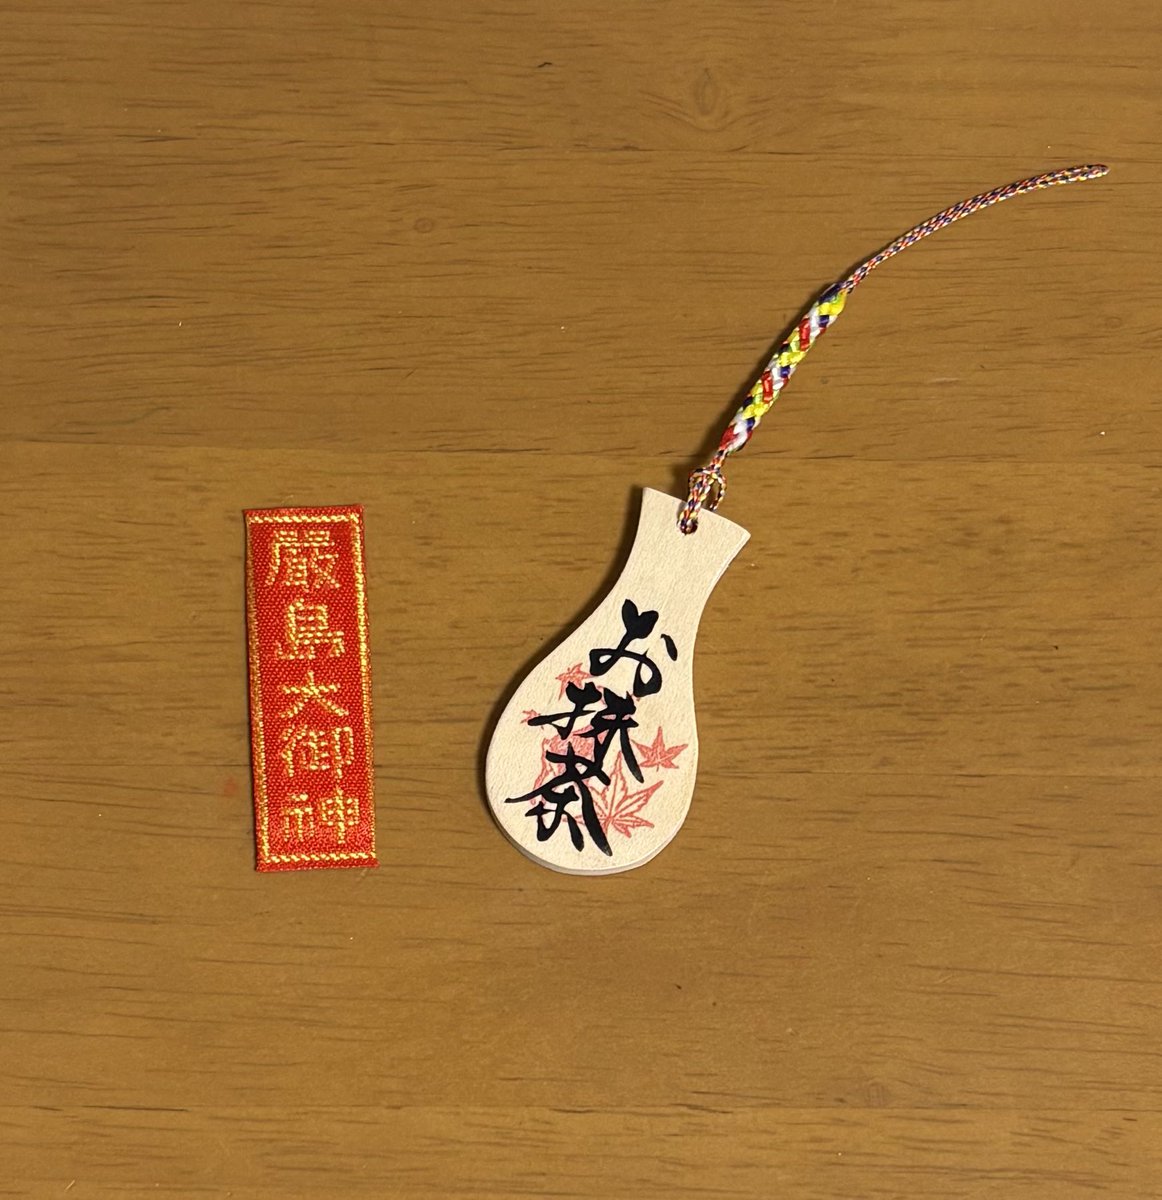 嚴島大御神
お抹茶